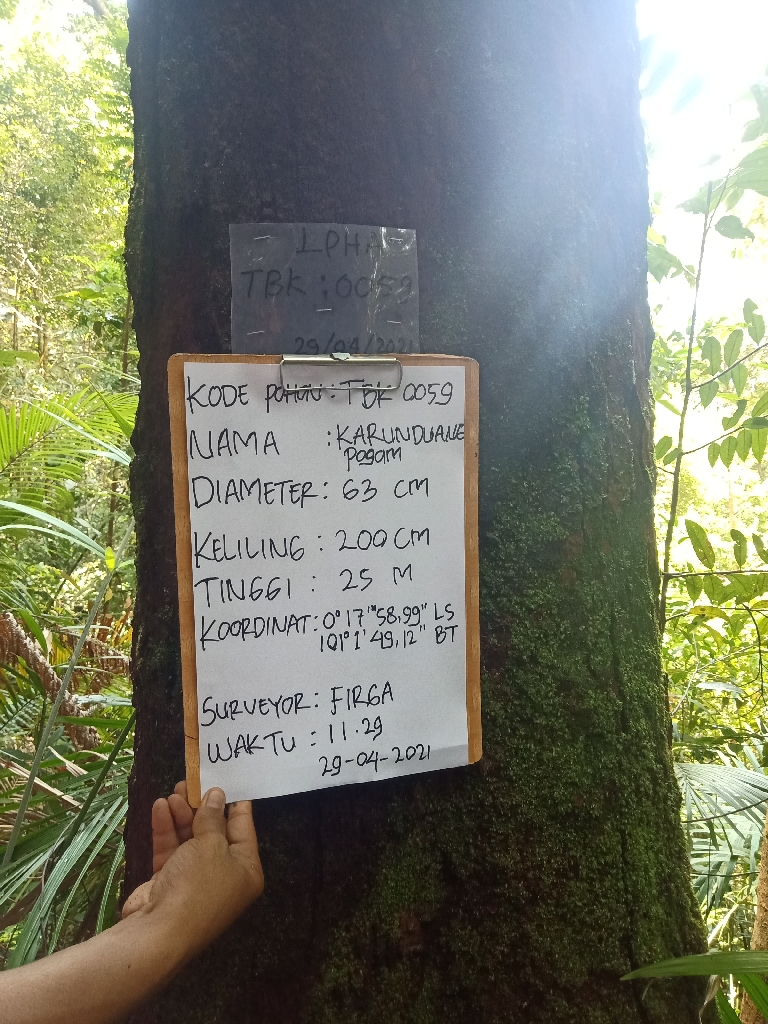 LPHA
TBK : 0059
29/04/2021
KODE POHON : TBK 0059
NAMA : KARUNDUANE
pogam
DIAMETER : 63 CM
KELILING : 200 CM
TINGGI : 25 M
KOORDINAT : 0° 17' 58,99" LS
101° 1' 49,12" BT
SURVEYOR : FIRGA
WAKTU : 11.29
29-04-2021